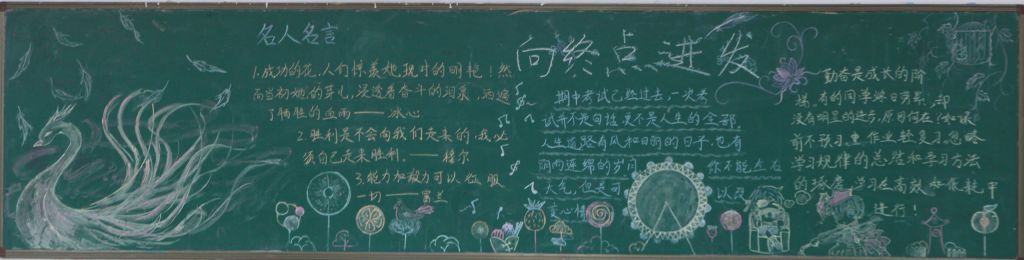 名人名言
1.成功的花,人们惊羡她现时的明艳!然
而当初她的芽儿,浸透着奋斗的泪泉,洒遍
了牺牲的血雨——冰心
2.胜利是不会向我们走来的,我必
须自己走来胜利.——穆尔
3.能力加毅力可以征服
一切——富兰
向终点进发
期中考试已经过去,一次考
试并不是目的更不是人生的全部,
人生道路有风和日丽的日子,也有
阴雨连绵的岁月 你不能左右
天气,但是可 以改
变心情
勤奋是成长的阶
梯,有的同学终日劳累,却
没有明显的进步,原因何在 如:课
前不预习,重作业轻复习,忽略
学习规律的总结和学习方法
的 学习在高效和
进行!